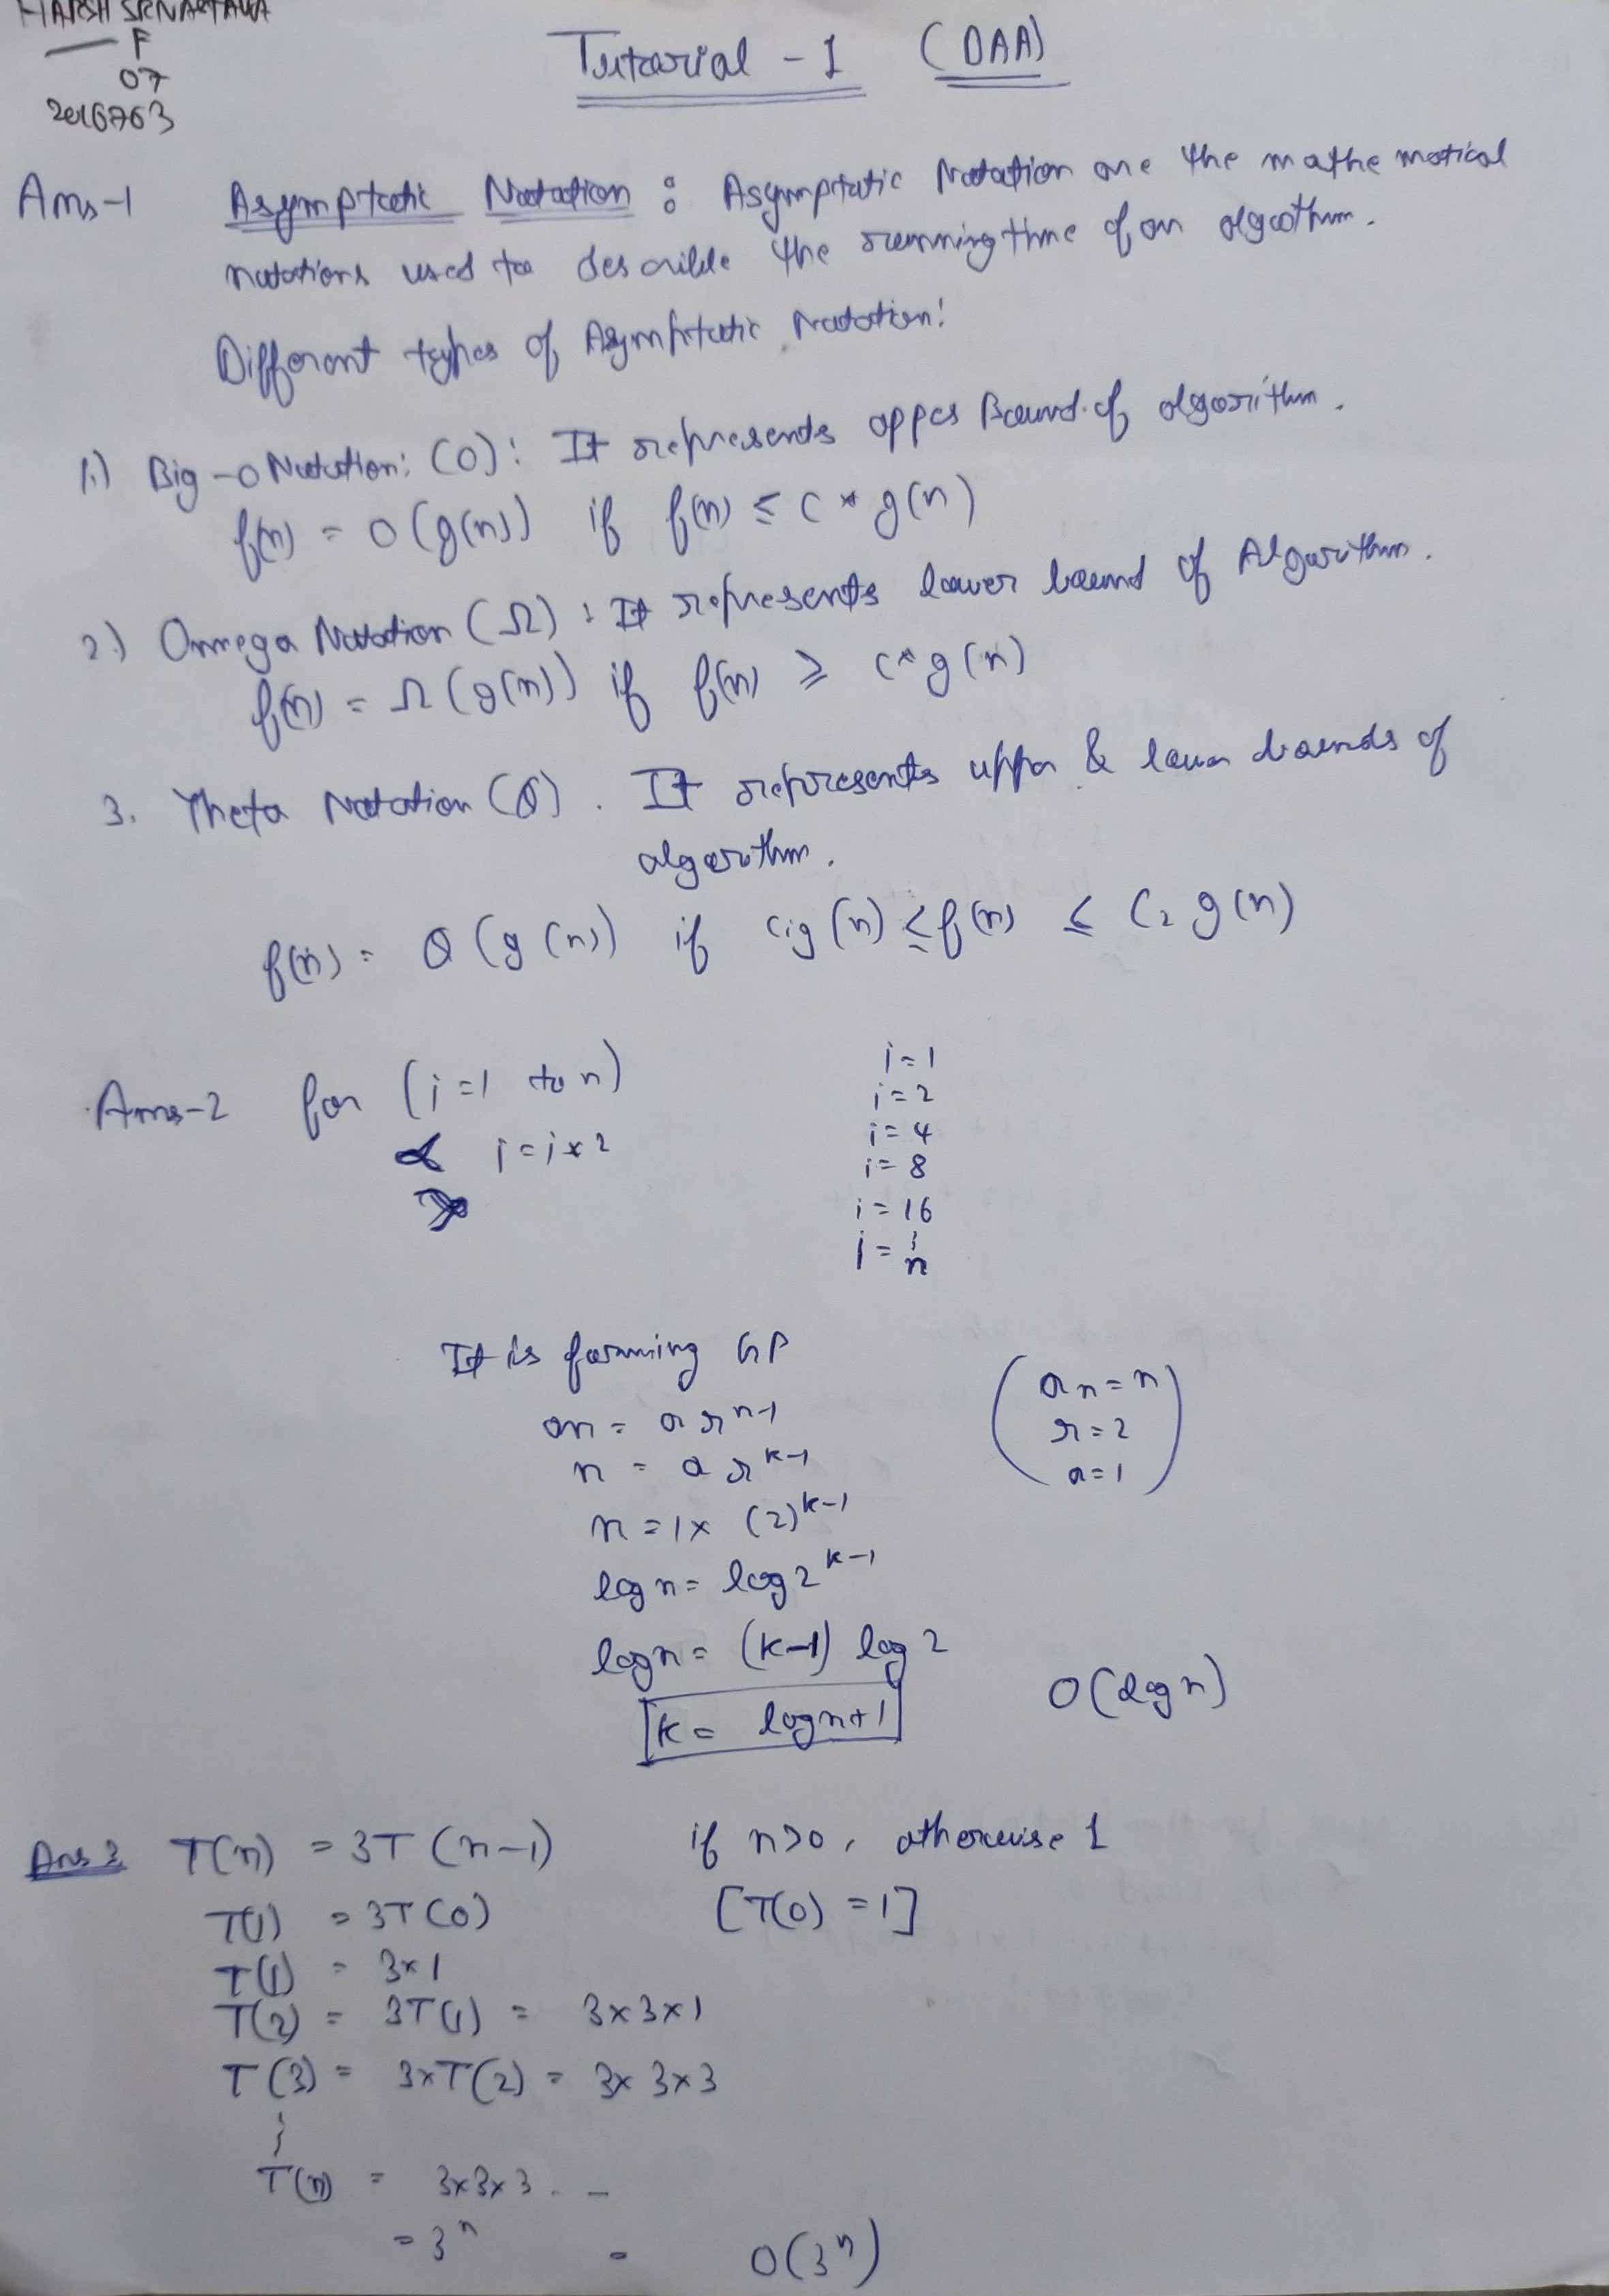 HARSH SRIVASTAVA
F
07
2016763
Tutorial - 1 (DAA)
Ans-1 Asymptotic Notation : Asymptotic Notation are the mathematical
notations used to describe the running time of an algorithm.
Different types of Asymptotic Notation:
1.) Big-O Notation: (O): It represents upper Bound of algorithm.
f(n) = O(g(n)) if f(n) ≤ c * g(n)
2.) Omega Notation (Ω) : It represents lower bound of Algorithm.
f(n) = Ω(g(n)) if f(n) ≥ c * g(n)
3. Theta Notation (θ). It represents upper & lower bounds of
algorithm.
f(n) = θ(g(n)) if c1g(n) ≤ f(n) ≤ C2 g(n)
Ans-2 for (i=1 to n)
{ i=i*2
}
i=1
i=2
i=4
i=8
i=16
⋮
i=n
It is forming GP
an = a r^n-1
n = a r^k-1
n = 1x (2)^k-1
log n = log 2^k-1
log n = (k-1) log 2
k = log n+1
(an=n
r=2
a=1)
O(log n)
Ans 3 T(n) = 3T(n-1) if n>0, otherwise 1
T(1) = 3T(0) [T(0) = 1]
T(1) = 3*1
T(2) = 3T(1) = 3x3x1
T(3) = 3xT(2) = 3x3x3
⋮
T(n) = 3x3x3 . . –
= 3^n = O(3^n)